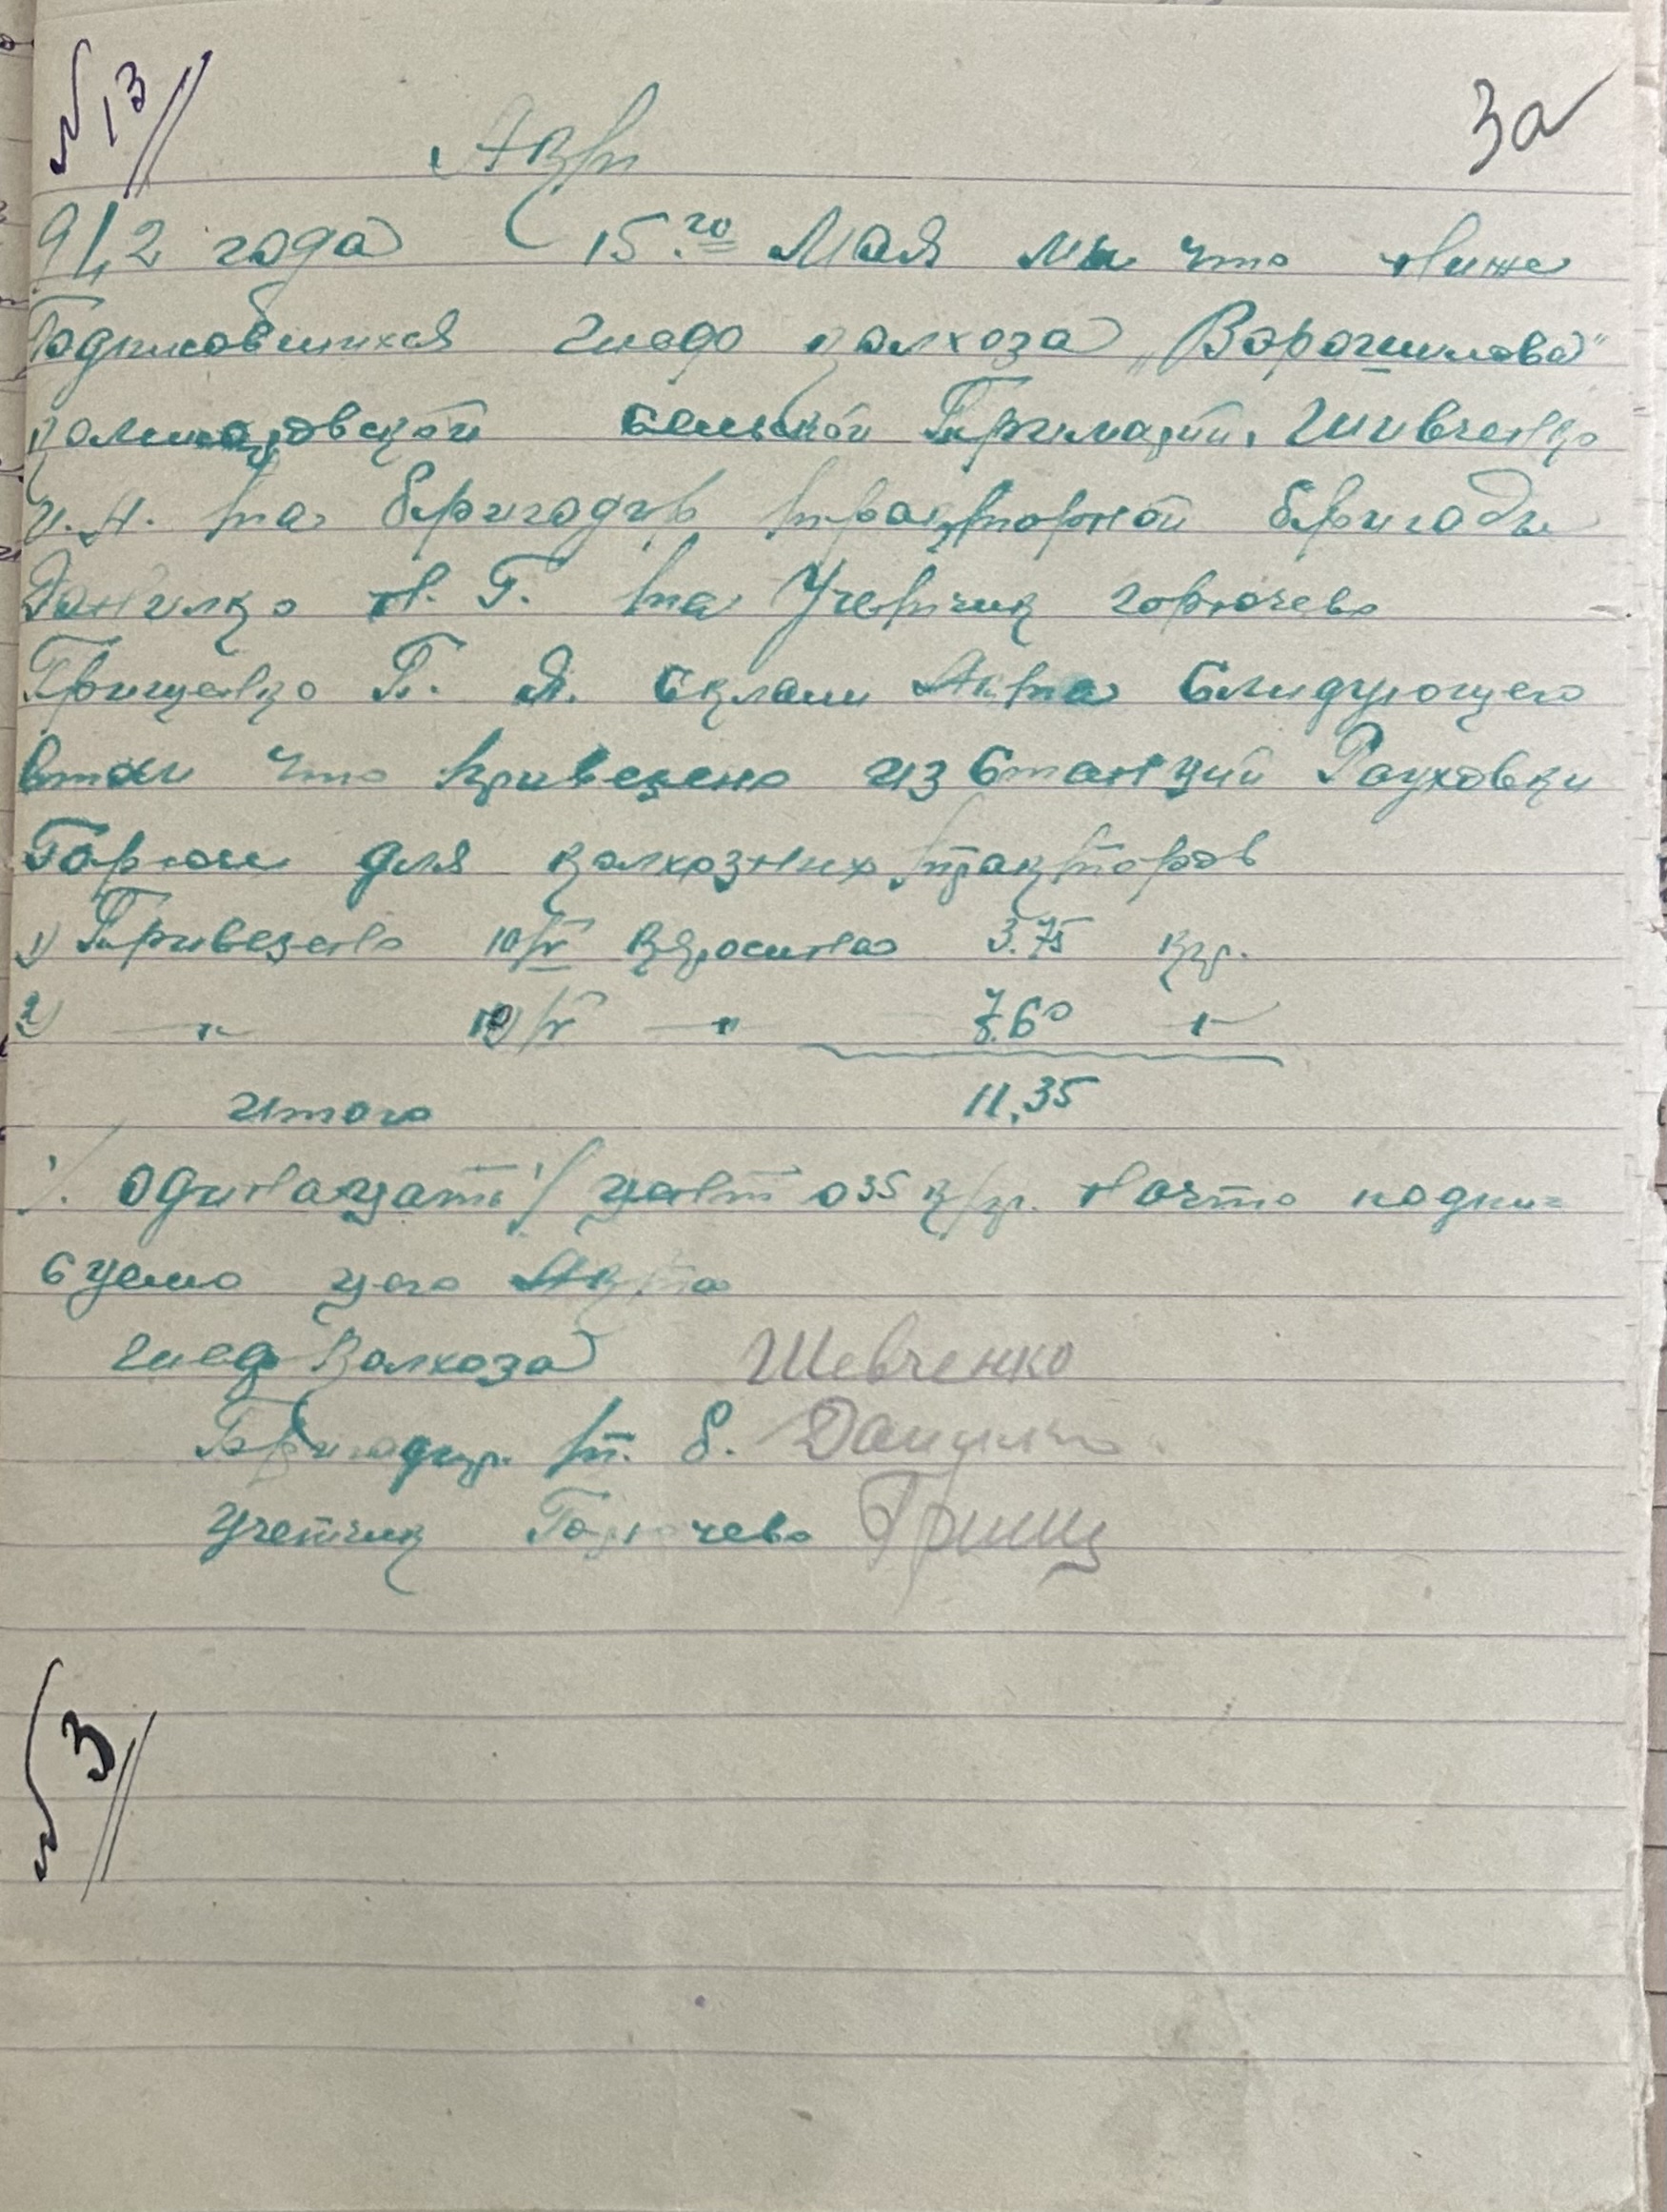 №13
3а
Акт
942 года 15го Мая мы что ниже
Подписовшихся Шеф колхоза „Ворошилова"
сельской Примарии, Шивченко
И. Н. та бригадир тракторной бригады
Данилко Н. Г. та Учетчик горючево
Грищенко П. Я. склали Акта Слидующего
втом что привезено из Станций Рауховки
Горюч для колхозних тракторов
1) Привезено 10/V Керосина 3.75 кгр.
2) —"— 12/V —"— 7.60 "—
Итого 11,35
/. Одинацать ./ цент 035 к/гр. Начто подпи=
суемо цего Акта
Шеф Колхоза Шевченко
Бригадир т. б. Данилко
Учетчик Горючево Грищ
№3